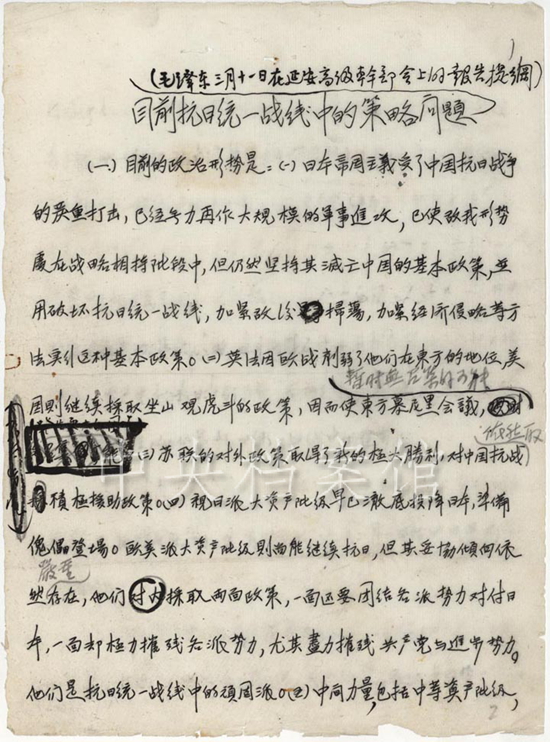 1
(毛泽东三月十一日在延安高级干部会上的報告提綱)
目前抗日统一战线中的策略问題
(一)目前的政治形势是:(一)日本帝国主義受了中国抗日战争
的严重打击,已经无力再作大規模的軍事進攻,已使敌我形势
处在战略相持阶段中,但仍然坚持其滅亡中国的基本政策,並
用破坏抗日统一战线,加紧敌後掃蕩,加紧经济侵略等方
法实行这种基本政策。(二)英法因欧战削弱了他们在東方的地位,美
暂时無召集的可能
国則继续採取坐山观虎斗的政策,因而使東方慕尼黑会議,
(三)苏联的对外政策取得了新的極大勝利,对中国抗战
依然取
積極援助政策。(四)親日派大资产阶级早已澈底投降日本,準備
傀儡登場。欧美派大资产阶级則尚能继续抗日,但其妥協傾向依
嚴重
然存在,他们对内採取两面政策,一面还要团结各派势力对付日
本,一面却極力摧残各派势力,尤其盡力摧残共产党与進步势力。
他们是抗日统一战线中的頑固派。(五)中间力量,包括中等资产阶级,
2
中央档案馆